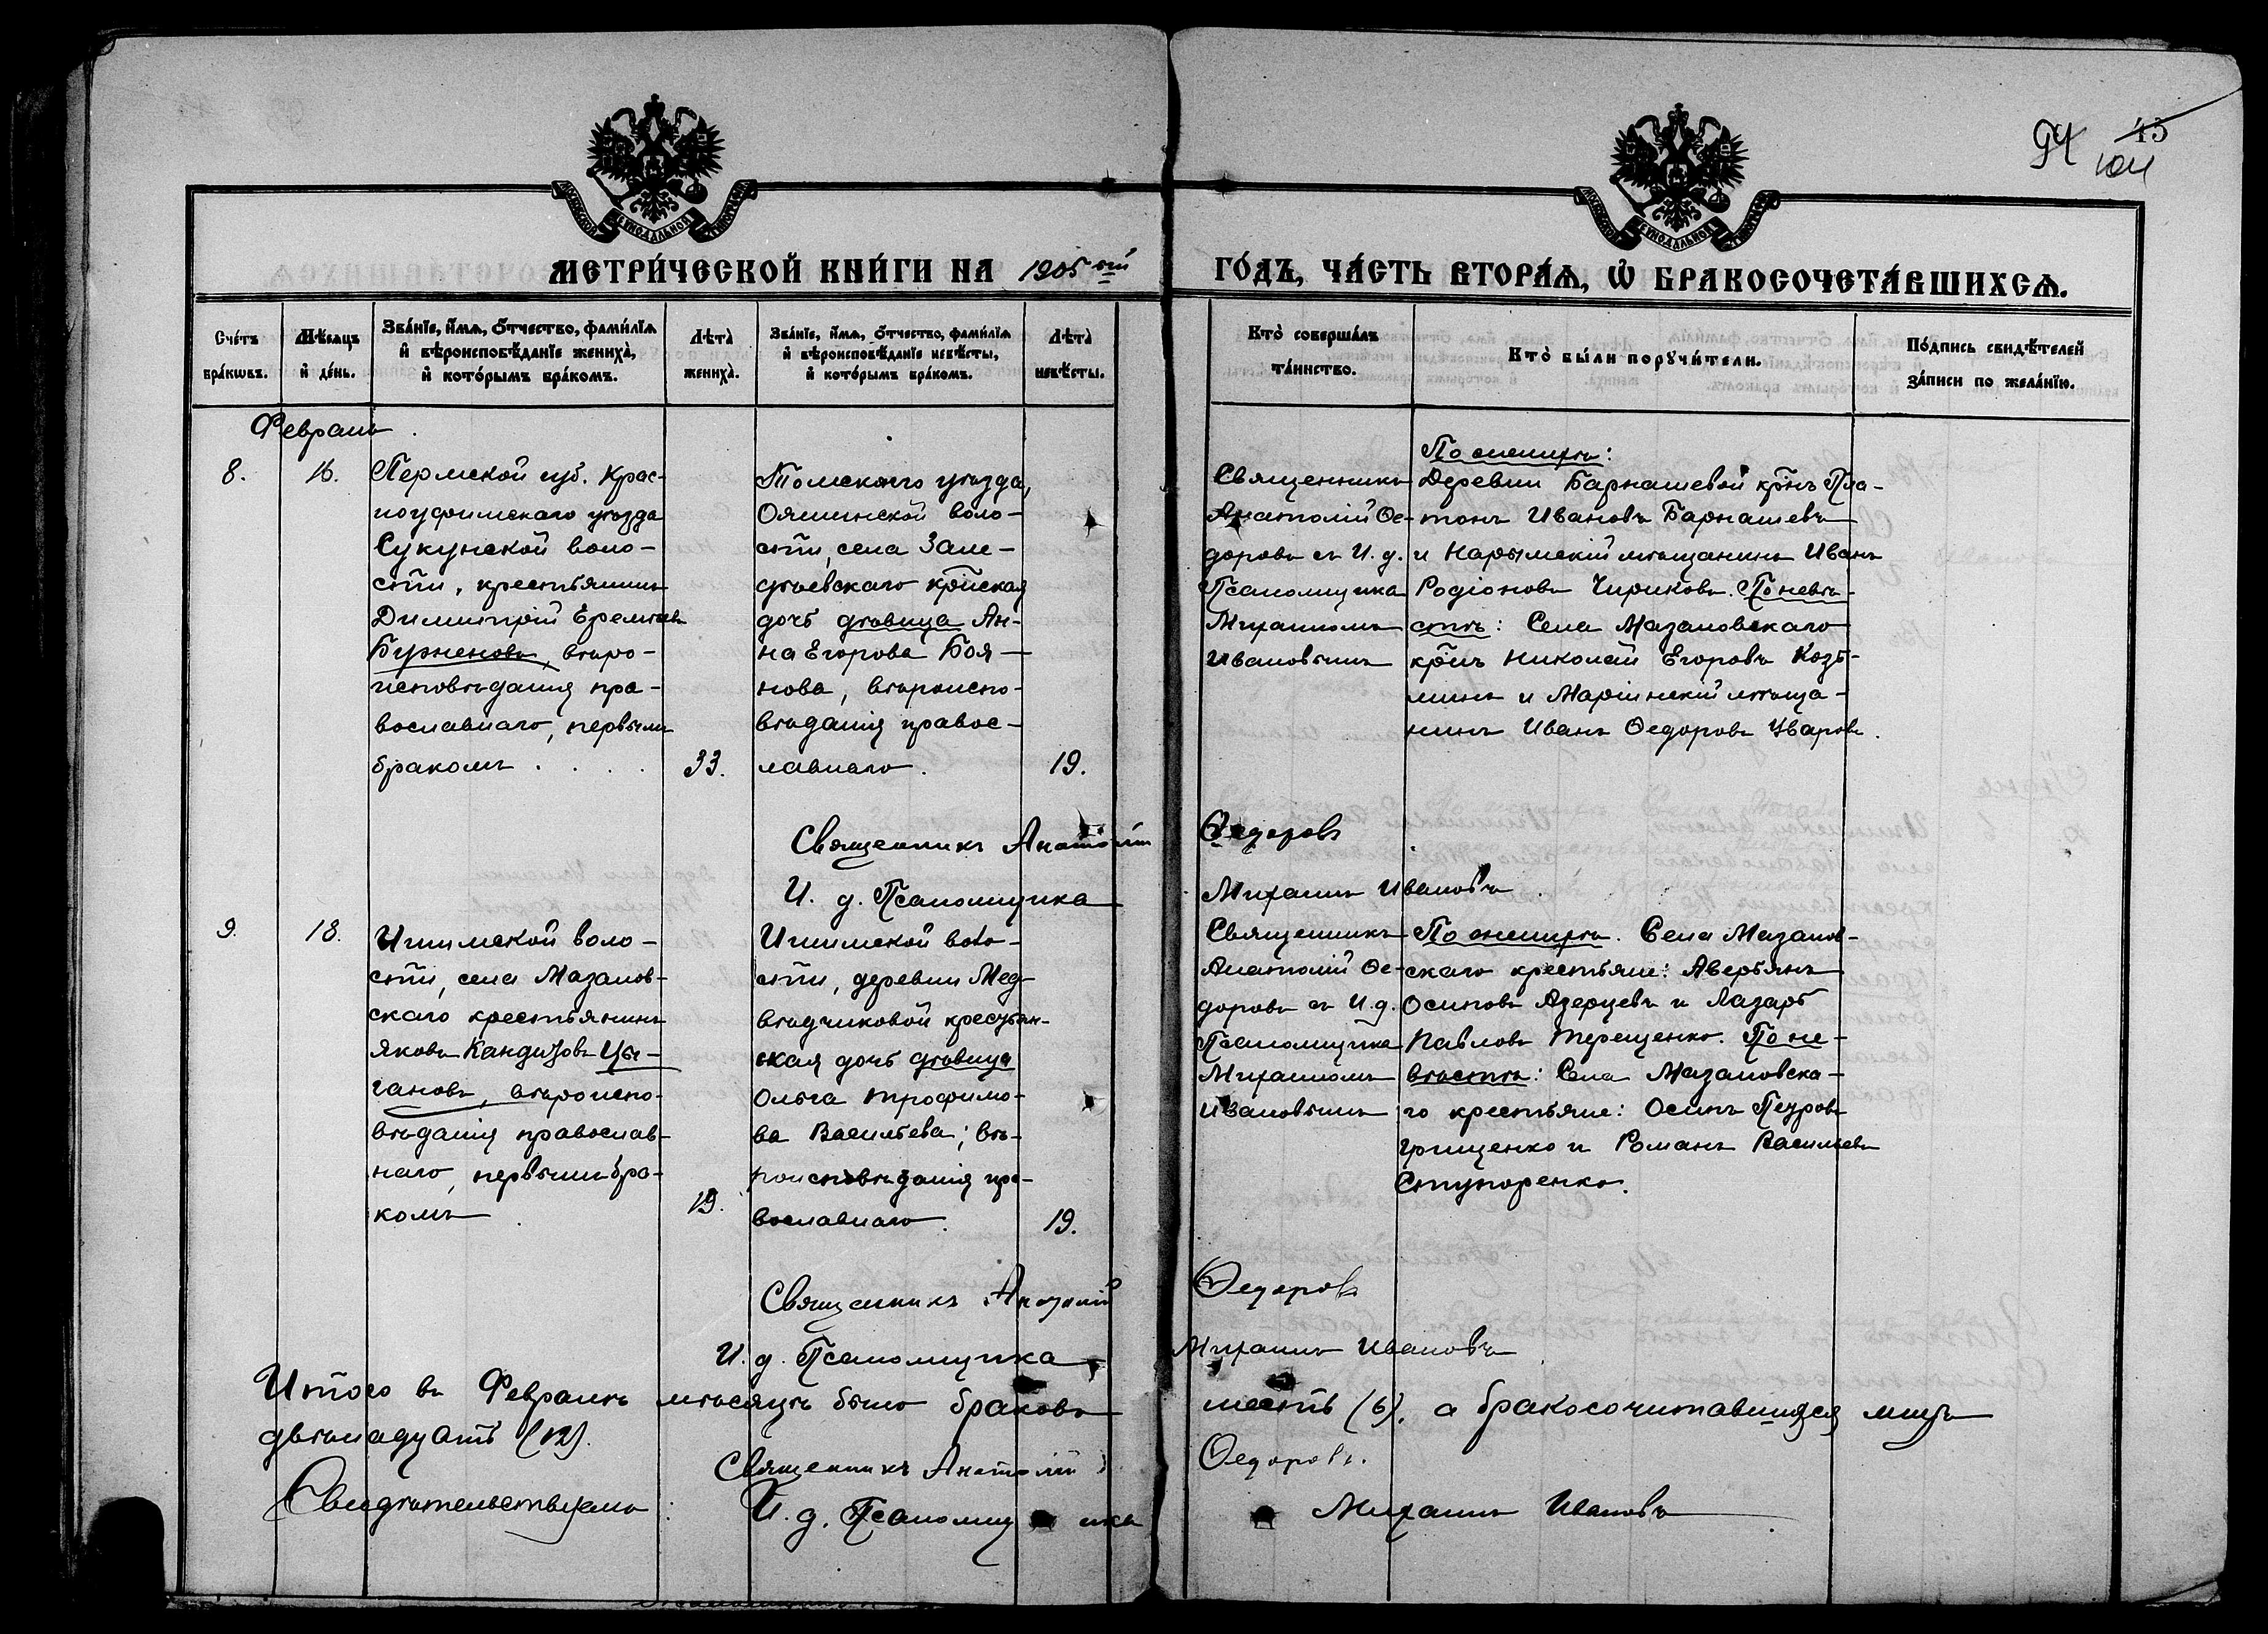 94 45
104
МОСКОВСКОЙ СѴНОДАЛЬНОЙ ТИПОГРАФІИ
МОСКОВСКОЙ СѴНОДАЛЬНОЙ ТИПОГРАФІИ
МЕТРИ́ЧЕСКОЙ КНИ́ГИ НА 1905 ый ГО́ДЪ, ЧА́СТЬ ВТОРА́Ѧ, Ѽ БРАКОСОЧЕТА́ВШИХСѦ.
Сче́тъ
бра́кѡвъ.
Мѣ́сѧцъ
и҆ де́нь.
Зва́нїе, и҆́мѧ, ѻ҆́тчество, фами́лїѧ
и҆ вѣроисповѣ́данїе жениха̀,
и҆ кото́рымъ бра́комъ.
Лѣта̀
жениха̀.
Зва́нїе, и҆́мѧ, ѻ҆́тчество, фами́лїѧ
и҆ вѣроисповѣ́данїе невѣ́сты,
и҆ кото́рымъ бра́комъ.
Лѣта̀
невѣ́сты.
Кто̀ соверша́лъ
та́инство.
Кто̀ бы́ли порꙋчи́тели.
По́дпись свидѣ́телей
за́писи по жела́нїю.
Февраль
8.
16.
Пермской губ. Крас-
ноуфимскаго уѣзда
Сукунской воло-
сти, крестьянинъ
Димитрій Еремѣевъ
Бурненовъ, вѣро-
исповѣданія пра-
вославнаго, первымъ
бракомъ
33.
Томскаго уѣзда,
Ояшинской воло-
сти, села Зале-
дѣевскаго кр҃йская
дочь дѣвица Ан-
на Егорова Боя-
нова, вѣроиспо-
вѣданія правос-
лавнаго.
19.
Священникъ
Анатолій Ѳе-
доровъ съ И. д.
Псаломщика
Михаиломъ
Ивановымъ
По женихѣ:
Деревни Барнашевой кр҃нъ Пла-
тонъ Ивановъ Барнашевъ
и Нарымскій мѣщанинъ Иванъ
Родіоновъ Чириковъ. По невѣ-
стѣ: Села Мазаловскаго
кр҃нъ Николай Егоровъ Козь-
минъ и Маріинскій мѣща-
нинъ Иванъ Ѳедоровъ Уваровъ.
Священникъ Анатолій Ѳедоровъ
И. д. Псаломщика Михаилъ Ивановъ
9.
18.
Ишимской воло-
сти, села Мазалов-
скаго крестьянинъ
Яковъ Кандидовъ Цы-
гановъ, вѣроиспо-
вѣданія православ-
наго, первымъ бра-
комъ
19.
Ишимской воло-
сти, деревни Мед-
вѣдчиковой крестьян-
ская дочь дѣвица
Ольга Трофимо-
ва Васильева; вѣ-
роисповѣданія пра-
вославнаго.
19.
Священникъ
Анатолій Ѳе-
доровъ съ И. д.
Псаломщика
Михаиломъ
Ивановымъ
По женихѣ. Села Мазалов-
скаго крестьяне: Аверьянъ
Осиповъ Азерцевъ и Лазарь
Павловъ Терещенко. По не-
вѣстѣ: Села Мазаловска-
го крестьяне: Осипъ Петровъ
Грищенко и Романъ Васильевъ
Ступоренко.
Священникъ Анатолій Ѳедоровъ
И. д. Псаломщика Михаилъ Ивановъ
Итого въ Февралѣ мѣсяцѣ было браковъ шесть (6), а бракосочитавшихся лицъ
двѣнадцать (12).
Священникъ Анатолій Ѳедоровъ.
Свидѣтельствуемъ: И. д. Псаломщика Михаилъ Ивановъ